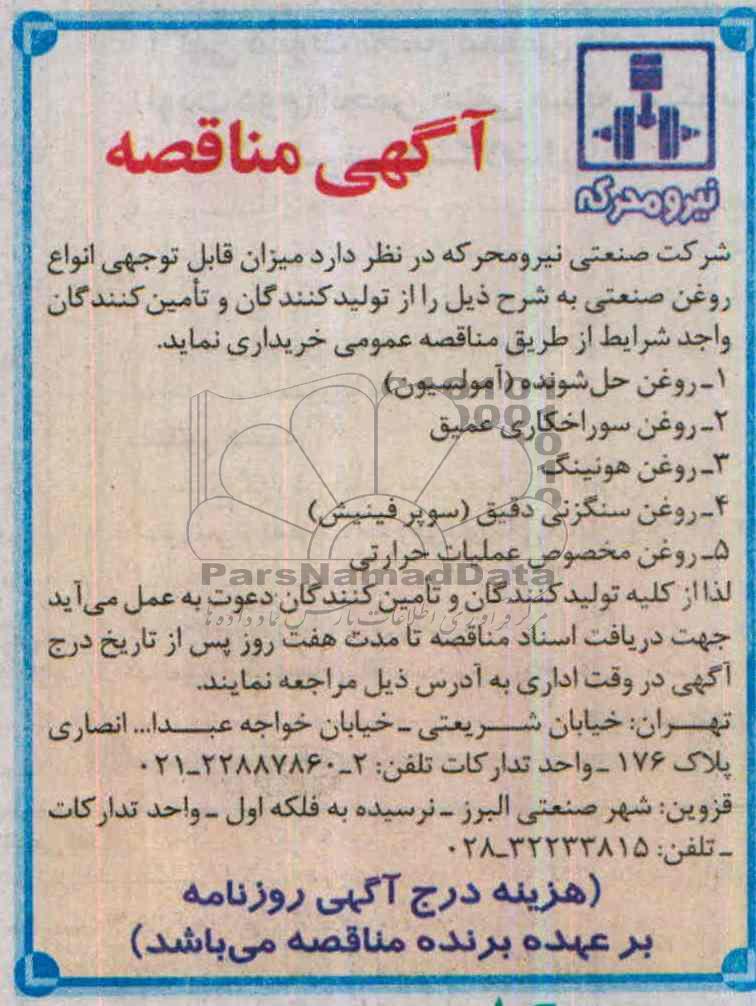 آگهی مناقصه
نیرومحرکه
شرکت صنعتی نیرومحرکه در نظر دارد میزان قابل توجهی انواع
روغن صنعتی به شرح ذیل را از تولیدکنندگان و تأمین‌کنندگان
واجد شرایط از طریق مناقصه عمومی خریداری نماید.
۱ـ روغن حل‌شونده (آمولسیون)
۲ـ روغن سوراخکاری عمیق
۳ـ روغن هونینگ
۴ـ روغن سنگزنی دقیق (سوپر فینیش)
۵ـ روغن مخصوص عملیات حرارتی
ParsNamadData
لذا از کلیه تولیدکنندگان و تأمین‌کنندگان دعوت به عمل می‌آید
جهت دریافت اسناد مناقصه تا مدت هفت روز پس از تاریخ درج
آگهی در وقت اداری به آدرس ذیل مراجعه نمایند.
تهران: خیابان شریعتی ـ خیابان خواجه عبدا... انصاری
پلاک ۱۷۶ ـ واحد تدارکات تلفن: ۲ـ۰۲۱ـ۲۲۸۸۷۸۶۰
قزوین: شهر صنعتی البرز ـ نرسیده به فلکه اول ـ واحد تدارکات
ـ تلفن: ۰۲۸ـ۳۲۲۳۳۸۱۵
(هزینه درج آگهی روزنامه
بر عهده برنده مناقصه می‌باشد)